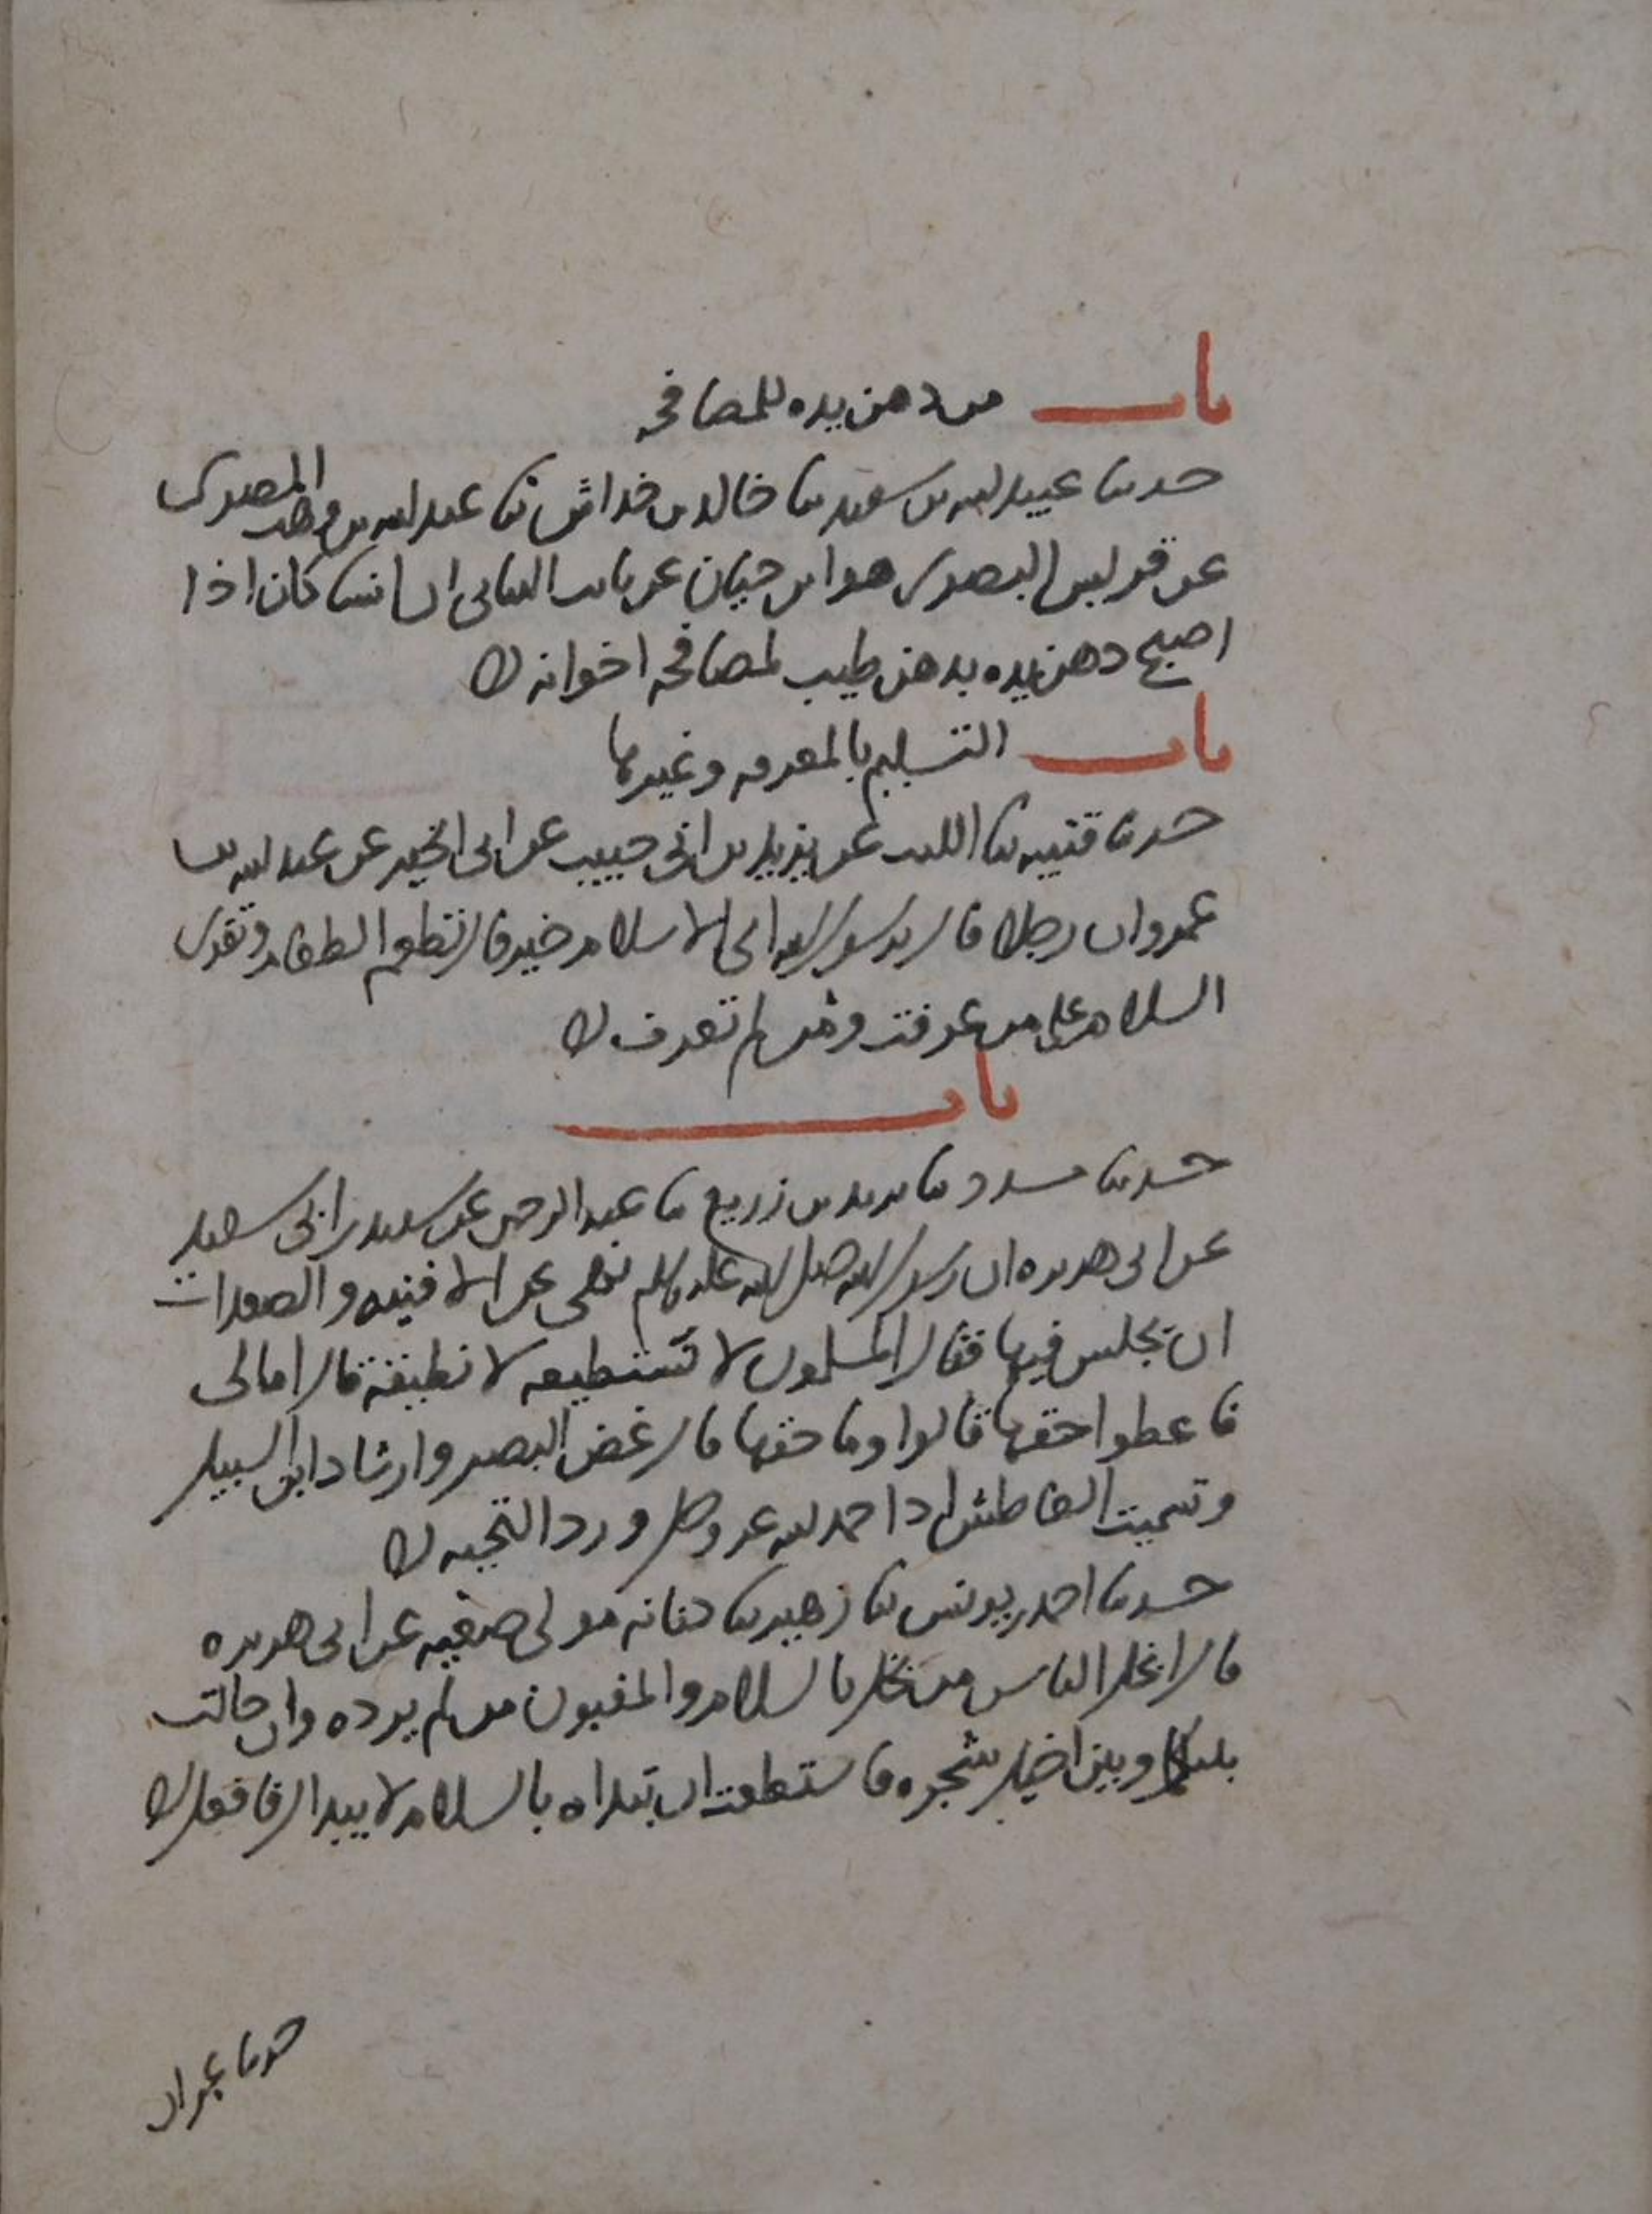 باب من دهن يده للمصافحة
حدثنا عبيد الله بن سعيد ثنا خالد بن خداش ثنا عبد الله بن وهب المصرى
عن قريش البصرى هو ابن حيان عن ثابت البنانى ان انسا كان اذا
اصبح دهن يده بدهن طيب لمصافحة اخوانه
باب التسليم بالمعرفه وغيرها
حدثنا قتيبه ثنا الليث عن يزيد بن ابى حبيب عن ابى الخير عن عبد الله بن
عمرو ان رجلا قال يرسول الله اى الاسلام خير قال تطعم الطعام وتقرى
السلام على من عرفت ومن لم تعرف
باب
حدثنا مسدد ثنا يزيد بن زريع ثنا عبد الرحمن عن سعيد بن ابى سعيد
عن ابى هريره ان رسول الله صلى الله عليه وسلم نهى عن الافنيه والصعدات
ان نجلس فيها فقال المسلمون لا نستطيعه لا نطيقه قال اما لى
فاعطوا حقها قالوا وما حقها قال غض البصر وارشاد ابن السبيل
وتسميت العاطش اذا حمد الله عز وجل ورد التحيه
حدثنا احمد بن يونس ثنا زهير ثنا كنانه مولى صفيه عن ابى هريره
قال ابخل الناس من بخل بالسلام والمغبون من لم يرده وان حالت
بينك وبين اخيك شجره فاستطعت ان تبداه بالسلام لا يبدا لك فافعل
حدثنا عمران